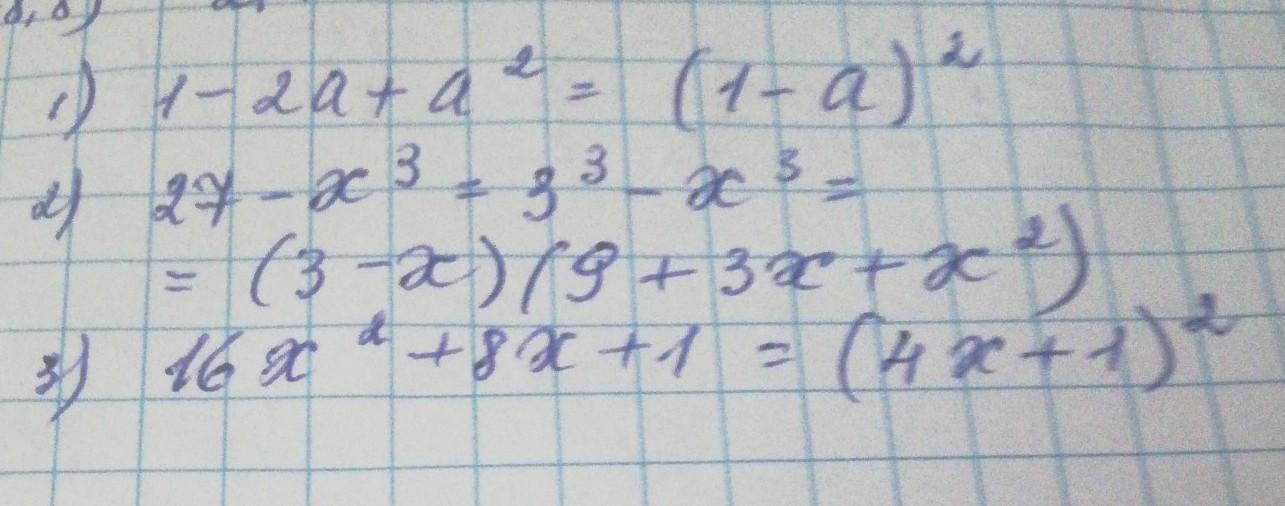 1) 1 - 2a + a² = (1 - a)²
2) 27 - x³ = 3³ - x³ =
= (3 - x)(9 + 3x + x²)
3) 16x² + 8x + 1 = (4x + 1)²